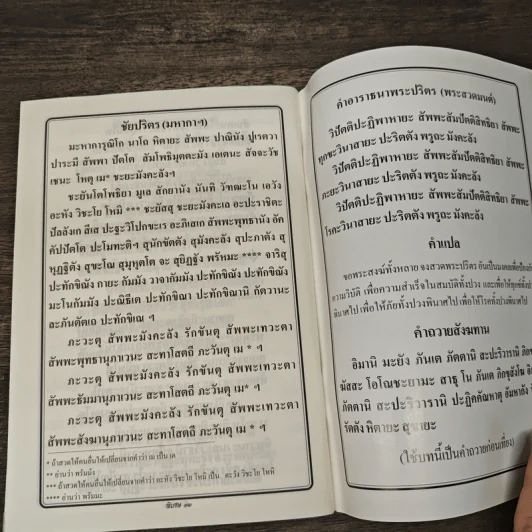 ชัยปริตร (มหากาฯ)
มะหาการุณิโก นาโถ หิตายะ สัพพะ ปาณินัง ปูเรตวา
ปาระมี สัพพา ปัตโต สัมโพธิมุตตะมัง เอเตนะ สัจจะวัช
เชนะ โหตุ เม* ชะยะมังคะลังฯ
ชะยันโตโพธิยา มูเล สักยานัง นันทิ วัฑฒะโน เอวัง
อะหัง วิชะโย โหมิ *** ชะยัสสุ ชะยะมังคะเล อะปะราชิตะ
ปัลลังเก สีเส ปะฐะวิโปกขะเร อะภิเสเก สัพพะพุทธานัง อัค
คัปปัตโต ปะโมทะติฯ สุนักขัตตัง สุมังคะลัง สุปะภาตัง สุ
หุฏฐิตัง สุขะโณ สุมุหุตโต จะ สุยิฏฐัง พรัหมะ **** จาริสุ
ปะทักขิณัง กายะ กัมมัง วาจากัมมัง ปะทักขิณัง ปะทักขิณัง
มะโนกัมมัง ปะณิธีเต ปะทักขิณา ปะทักขิณานิ กัตวานะ
ละภันตัตเถ ปะทักขิเณ ฯ
ภะวะตุ สัพพะมังคะลัง รักขันตุ สัพพะเทวะตา
สัพพะพุทธานุภาเวนะ สะทาโสตถี ภะวันตุ เม * ฯ
ภะวะตุ สัพพะมังคะลัง รักขันตุ สัพพะเทวะตา
สัพพะธัมมานุภาเวนะ สะทาโสตถี ภะวันตุ เม* ฯ
ภะวะตุ สัพพะมังคะลัง รักขันตุ สัพพะเทวะตา
สัพพะสังฆานุภาเวนะ สะทาโสตถี ภะวันตุ เม * ฯ
* ถ้าสวดให้คนอื่นให้เปลี่ยนจากคำว่า เม เป็น เต
** อ่านว่า พรัมมัง
*** ถ้าสวดให้คนอื่นให้เปลี่ยนจากคำว่า อะหัง วิชะโย โหมิ เป็น ตะวัง วิชะโย โหหิ
**** อ่านว่า พรัมมะ
คำอาราธนาพระปริตร (พระสวดมนต์)
วิปัตติปะฏิพาหายะ สัพพะสัมปัตติสิทธิยา สัพพะ
ทุกขะวินาสายะ ปะริตตัง พรูถะ มังคะลัง
วิปัตติปะฏิพาหายะ สัพพะสัมปัตติสิทธิยา สัพพะ
ภะยะวินาสายะ ปะริตตัง พรูถะ มังคะลัง
วิปัตติปะฏิพาหายะ สัพพะสัมปัตติสิทธิยา สัพพะ
โรคะวินาสายะ ปะริตตัง พรูถะ มังคะลัง
คำแปล
ขอพระสงฆ์ทั้งหลาย จงสวดพระปริตร อันเป็นมงคลเพื่อป้องกัน
ความวิบัติ เพื่อความสำเร็จในสมบัติทั้งปวง และเพื่อให้ทุกข์ทั้งปวง
พินาศไป เพื่อให้ภัยทั้งปวงพินาศไป เพื่อให้โรคทั้งปวงพินาศไป
คำถวายสังฆทาน
อิมานิ มะยัง ภันเต ภัตตานิ สะปะริวารานิ ภิกขุ
สังฆัสสะ โอโณชะยามะ สาธุ โน ภันเต ภิกขุสังโฆ อิมานิ
ภัตตานิ สะปะริวารานิ ปะฏิคคัณหาตุ อัมหากัง
รัตตัง หิตายะ สุขายะ
(ใช้บทนี้เป็นคำถวายก่อนเที่ยง)